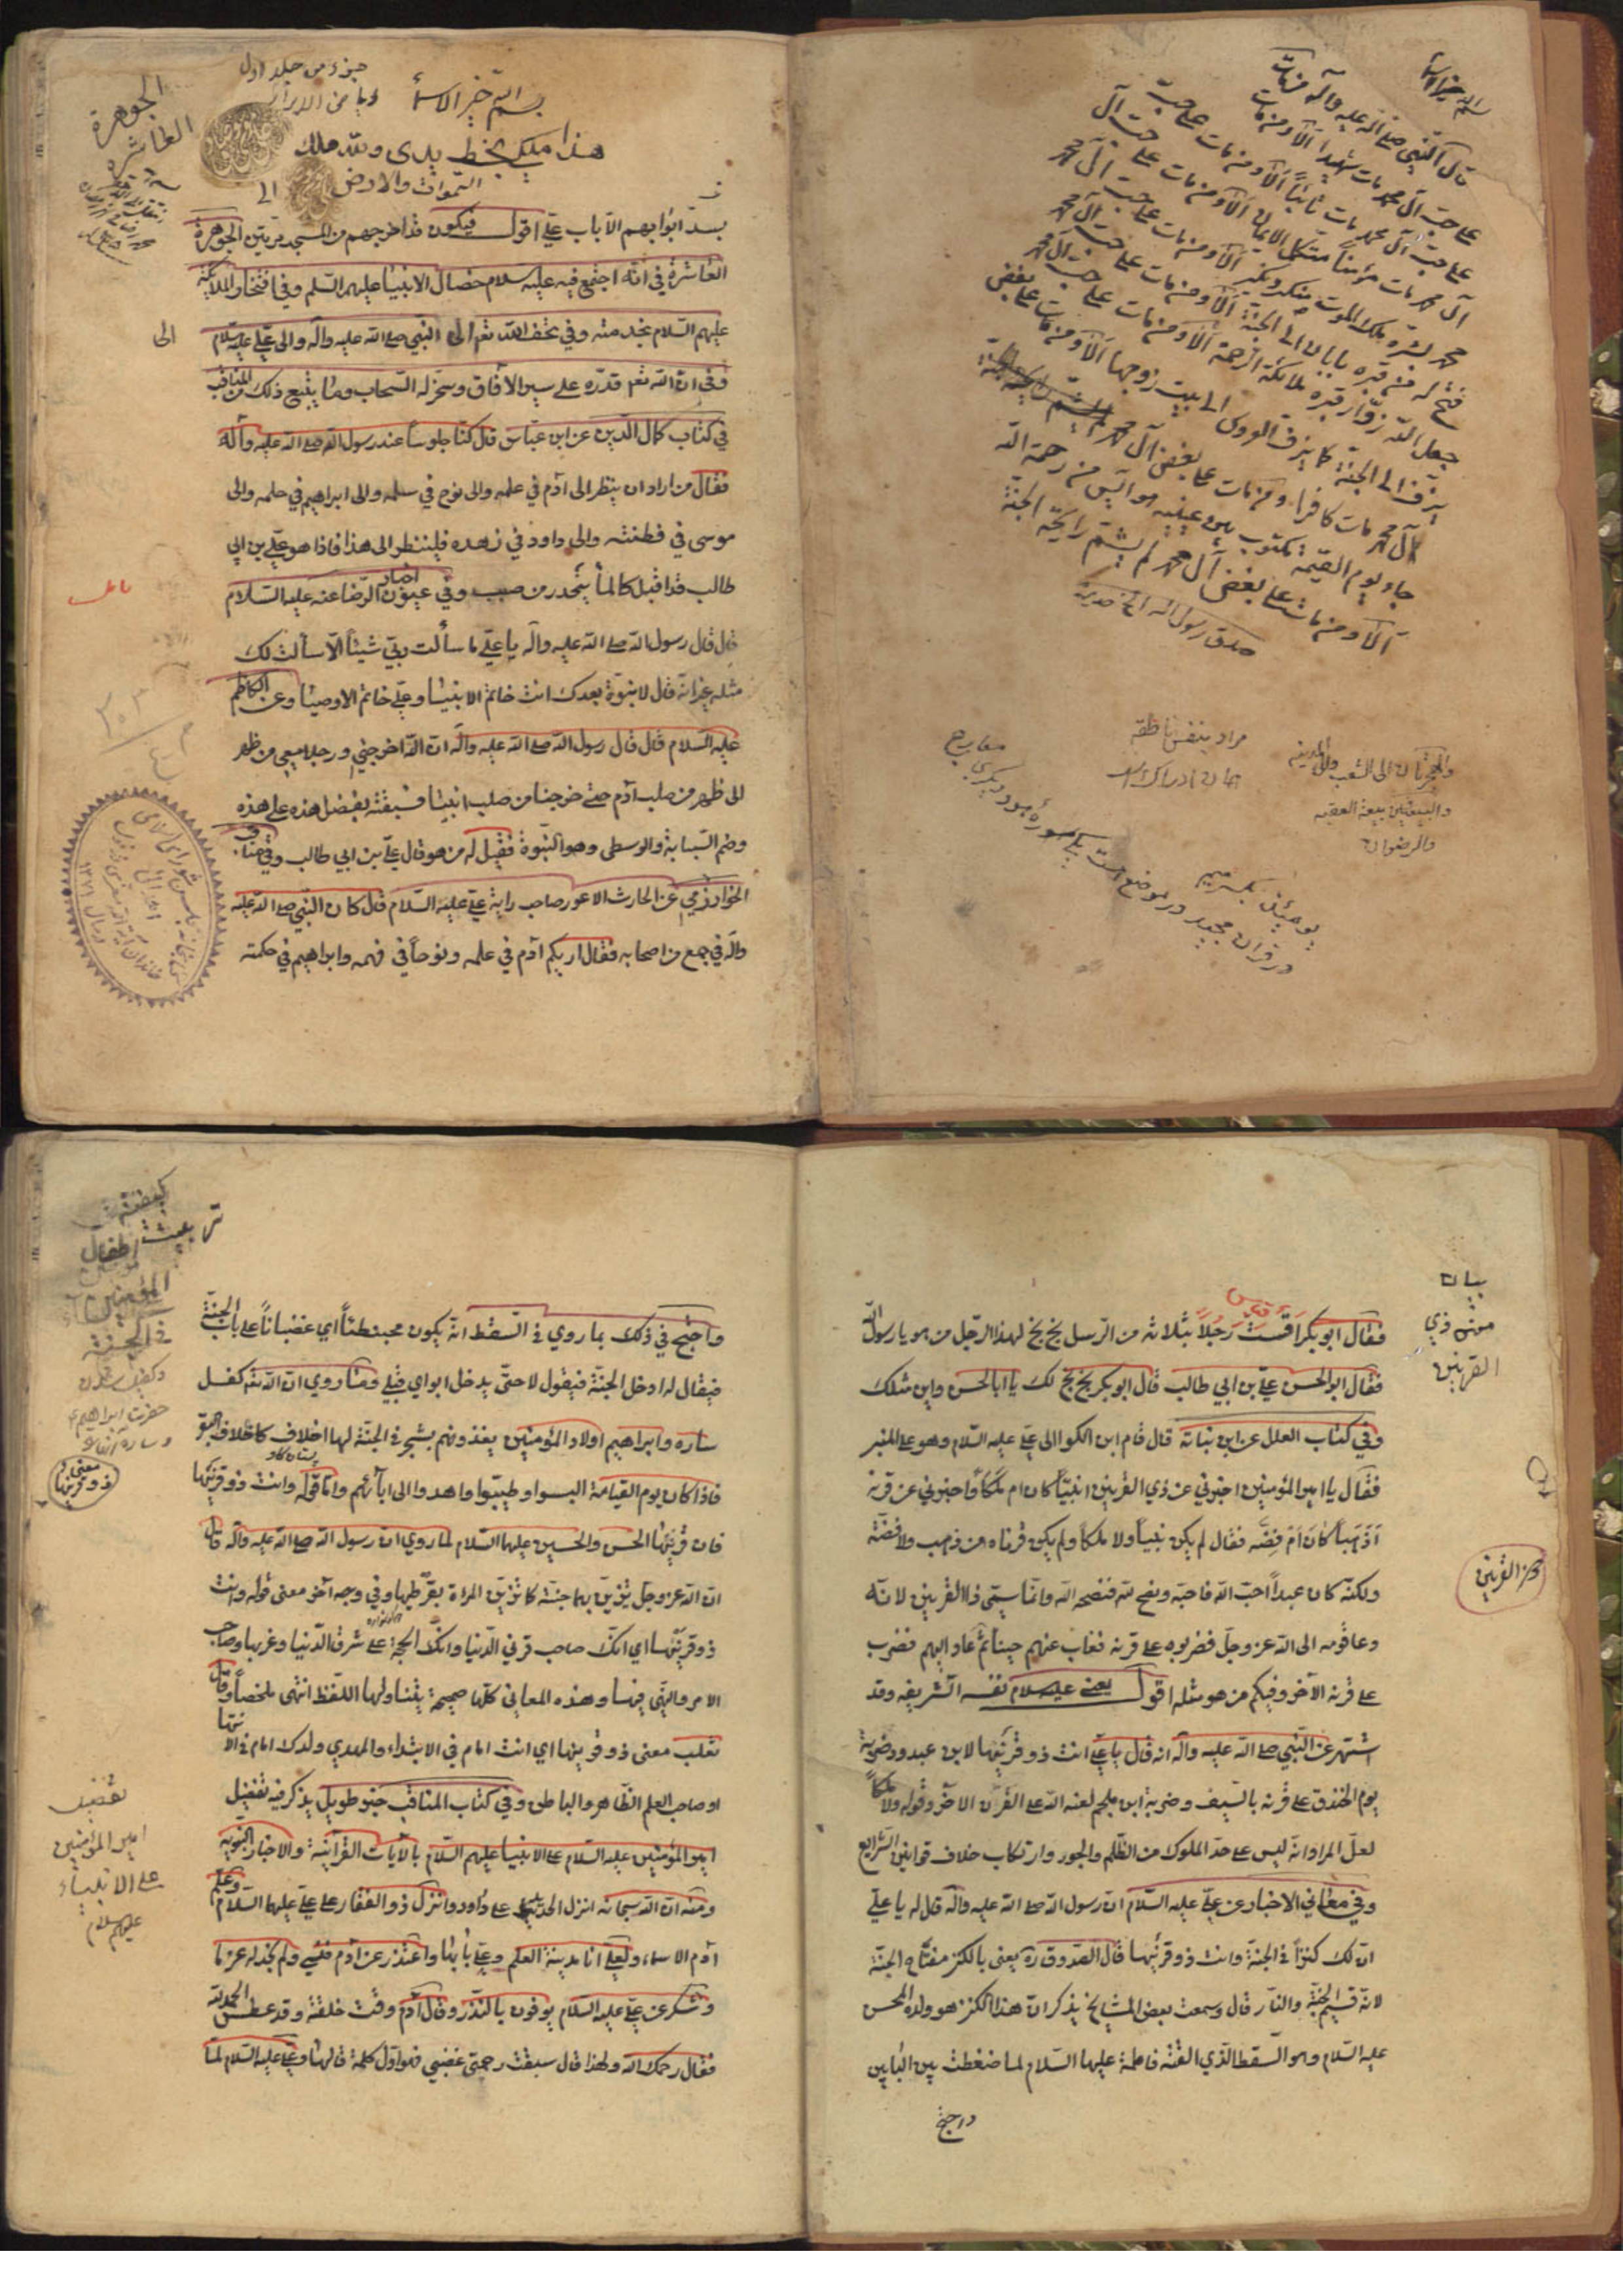 بسم الله خير الاسماء
قال النبي صلى الله عليه وآله من مات
على حب آل محمد مات شهيدا ألا ومن مات
على حب آل محمد مات تائباً ألا ومن مات على حب
آل محمد مات مؤمناً مستكمل الايمان ألا ومن مات على حب آل
محمد بشره ملك الموت منكر ونكير ألا ومن مات على حب آل محمد
فتح له من قبره بابان الى الجنة ألا ومن مات على حب آل محمد
جعل الله زوار قبره ملائكة الرحمة ألا ومن مات على حب آل محمد
يزف الى الجنة كما يزف العروس الى بيت زوجها ألا ومن مات على بغض
آل محمد مات كافرا ومن مات على بغض آل محمد
جاء يوم القيمة مكتوب بين عينيه هو آيس من رحمة الله
ألا ومن مات على بغض آل محمد لم يشم رايحة الجنة
صدق رسول الله
والهجرتان الى الشعب والى المدينة
والبيعتين بيعة العقبه
والرضوان
مراد بنفس ناطقه
يومئذ بكسر ميم
در قران مجيد در موضع است يكى سوره هود ديكرى
معارج
جزء من جلد اول
بسم الله خير الاسماء
الجوهرة
العاشره
هذا ملكى بخط يدى ولله ملك
السموات والارض
بسد ابوابهم الا باب علي اقول فيكون قد اخرجهم من المسجد مرتين الجوهرة
العاشرة في انه اجتمع فيه عليه سلام خصال الانبيا عليهم السلم وفي افتخار الملائكة
عليهم السلام بخدمته وفي تحف الله تعم الى النبي صلى الله عليه وآله والى علي عليه سلام
الى
وفي ان الله تعم قدره على سير الآفاق وسخر له السحاب وما يتبع ذلك من المناقب
في كتاب كمال الدين عن ابن عباس قال كنا جلوساً عند رسول الله صلى الله عليه وآله
فقال من اراد ان ينظر الى آدم في علمه والى نوح في سلمه والى ابراهيم في حلمه والى
موسى في فطنته والى داود في زهده فلينظر الى هذا فاذا هو علي بن ابي
طالب قد اقبل كالما ينحدر من صبب وفي عيون اخبار الرضا عنه عليه السلام
قال قال رسول الله صلى الله عليه وآله يا علي ما سألت ربي شيئاً الا سألت لك
مثله غير انه قال لا نبوة بعدك انت خاتم الانبيا وعلي خاتم الاوصيا وعن الكاظم
عليه السلام قال قال رسول الله صلى الله عليه وآله ان الله اخرجني ورجلا معي من ظهر
الى ظهر من صلب آدم حتى خرجنا من صلب ابينا فسبقته بفضل هذه على هذه
وضم السبابة والوسطى وهو النبوة فقيل له من هو قال علي بن ابي طالب وفي مناقب
الخوارزمي عن الحارث الاعور صاحب راية علي عليه السلام قال كان النبي صلى الله عليه
وآله في جمع من اصحابه فقال اريكم آدم في علمه ونوحاً في فهمه وابراهيم في حكمته
كتابخانه مجلس شوراى اسلامى
اهدائى
١٣٧١
بيان
معنى ذي
القرنين
فقال ابو بكر اقست رجلاً بثلاثه من الرسل بخ بخ لهذا الرجل من هو يا رسول الله
فقال ابو الحسن علي بن ابي طالب قال ابو بكر بخ بخ لك يا ابا الحسن واين مثلك
وفي كتاب العلل عن ابن نباتة قال قام ابن الكوا الى علي عليه السلام وهو على المنبر
فقال يا امير المؤمنين اخبرني عن ذي القرنين انبيّاً كان ام ملكاً واخبرني عن قرنه
أذهباً كان أم فضه فقال لم يكن نبياً ولا ملكاً ولم يكن قرناه من ذهب ولا فضة
ولكنه كان عبداً احب الله فاحبه ونصح لله فنصحه الله وانما سمي ذا القرنين لانه
دعا قومه الى الله عز وجل فضربوه على قرنه فغاب عنهم حيناً ثم عاد اليهم فضرب
على قرنه الآخر وفيكم من هو مثله اقول يعني عليه سلام نفسه الشريفه وقد
اشتهر عن النبي صلى الله عليه وآله انه قال يا علي انت ذو قرنيها لابن عبدود ضربة
يوم الخندق على قرنه بالسيف وضربة ابن ملجم لعنه الله على القرن الآخر وقوله ولا ملكاً
لعل المراد انه ليس على حد الملوك من الظلم والجور وارتكاب خلاف قوانين الشرايع
وفي معاني الاخبار عن علي عليه السلام ان رسول الله صلى الله عليه وآله قال له يا علي
ان لك كنزاً في الجنة وانت ذو قرنيها قال الصدوق ره يعني بالكنز مفتاح الجنة
لانه قسيم الجنة والنار قال وسمعت بعض المشايخ يذكر ان هذا الكنز هو ولده المحسن
عليه السلام وهو السقط الذي القته فاطمة عليها السلام لما ضغطت بين البابين
واحتج
ذو القرنين
كيفية
تربيت اطفال
المؤمنين
في الجنة
حضرت ابراهيم
معنى
ذو قرنيها
واحتج في ذلك بما روي في السقط انه يكون محبنطئاً اي غضباناً على باب الجنة
فيقال له ادخل الجنة فيقول لا حتى يدخل ابواي قبلي ومما روي ان الله تعم كفل
ساره وابراهيم اولاد المؤمنين يغذونهم بشجر في الجنة لها اخلاف كاخلاف البقر
فاذا كان يوم القيامة البسوا وطيبوا واهدوا الى ابآئهم واما قوله وانت ذو قرنيها
فان قرنيها الحسن والحسين عليهما السلام لما روي ان رسول الله صلى الله عليه وآله قال
ان الله عز وجل يزين بهما جنته كما تزين المراة بقرطيها وفي وجه آخر معنى قوله وانت
ذو قرنيها اي انك صاحب قرني الدنيا وانك الحجة على شرق الدنيا وغربها وصاحب
الامر والنهي فيها وهذه المعاني كلها صحيحة يتناولها اللفظ انتهى ملخصاً وقال
ثعلب معنى ذو قرنيها اي انت امام في الابتداء والمهدي ولدك امام في الانتها
او صاحب العلم الظاهر والباطن وفي كتاب المناقب خبر طويل يذكر فيه تفضيل
امير المؤمنين عليه السلام على الانبيا عليهم السلام بالآيات القرآنية والاخبار النبوية
ومنه ان الله سبحانه انزل الحديد على داود وانزل ذو الفقار على علي عليهما السلام وعلم
آدم الاسماء ولعلي انا مدينة العلم وعلي بابها واعتذر عن آدم فنسي ولم نجد له عزما
وشكر عن علي عليه السلام يوفون بالنذر وقال آدم وقت خلقته وقد عطس الحمد لله
فقال رحمك الله ولهذا قال سبقت رحمتي غضبي فهو اول كلمة قالها وعلي عليه السلام لما
تفضيل
امير المؤمنين
على الانبياء
عليهم سلام